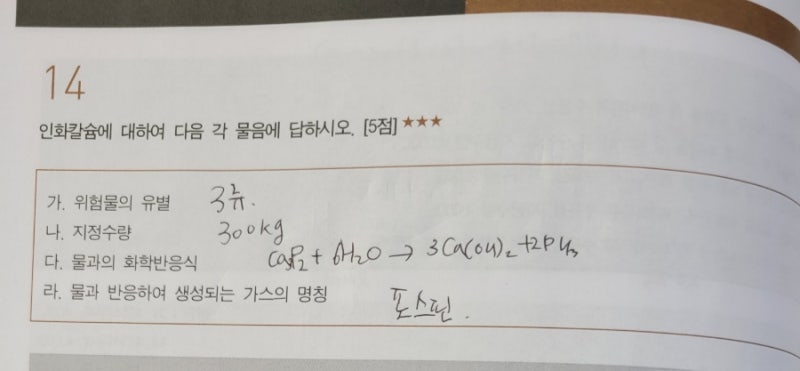 14
인화칼슘에 대하여 다음 각 물음에 답하시오. [5점]★★★
가. 위험물의 유별 3류.
나. 지정수량 300kg
다. 물과의 화학반응식 Ca3P2 + 6H2O → 3Ca(OH)2 + 2PH3
라. 물과 반응하여 생성되는 가스의 명칭 포스핀.